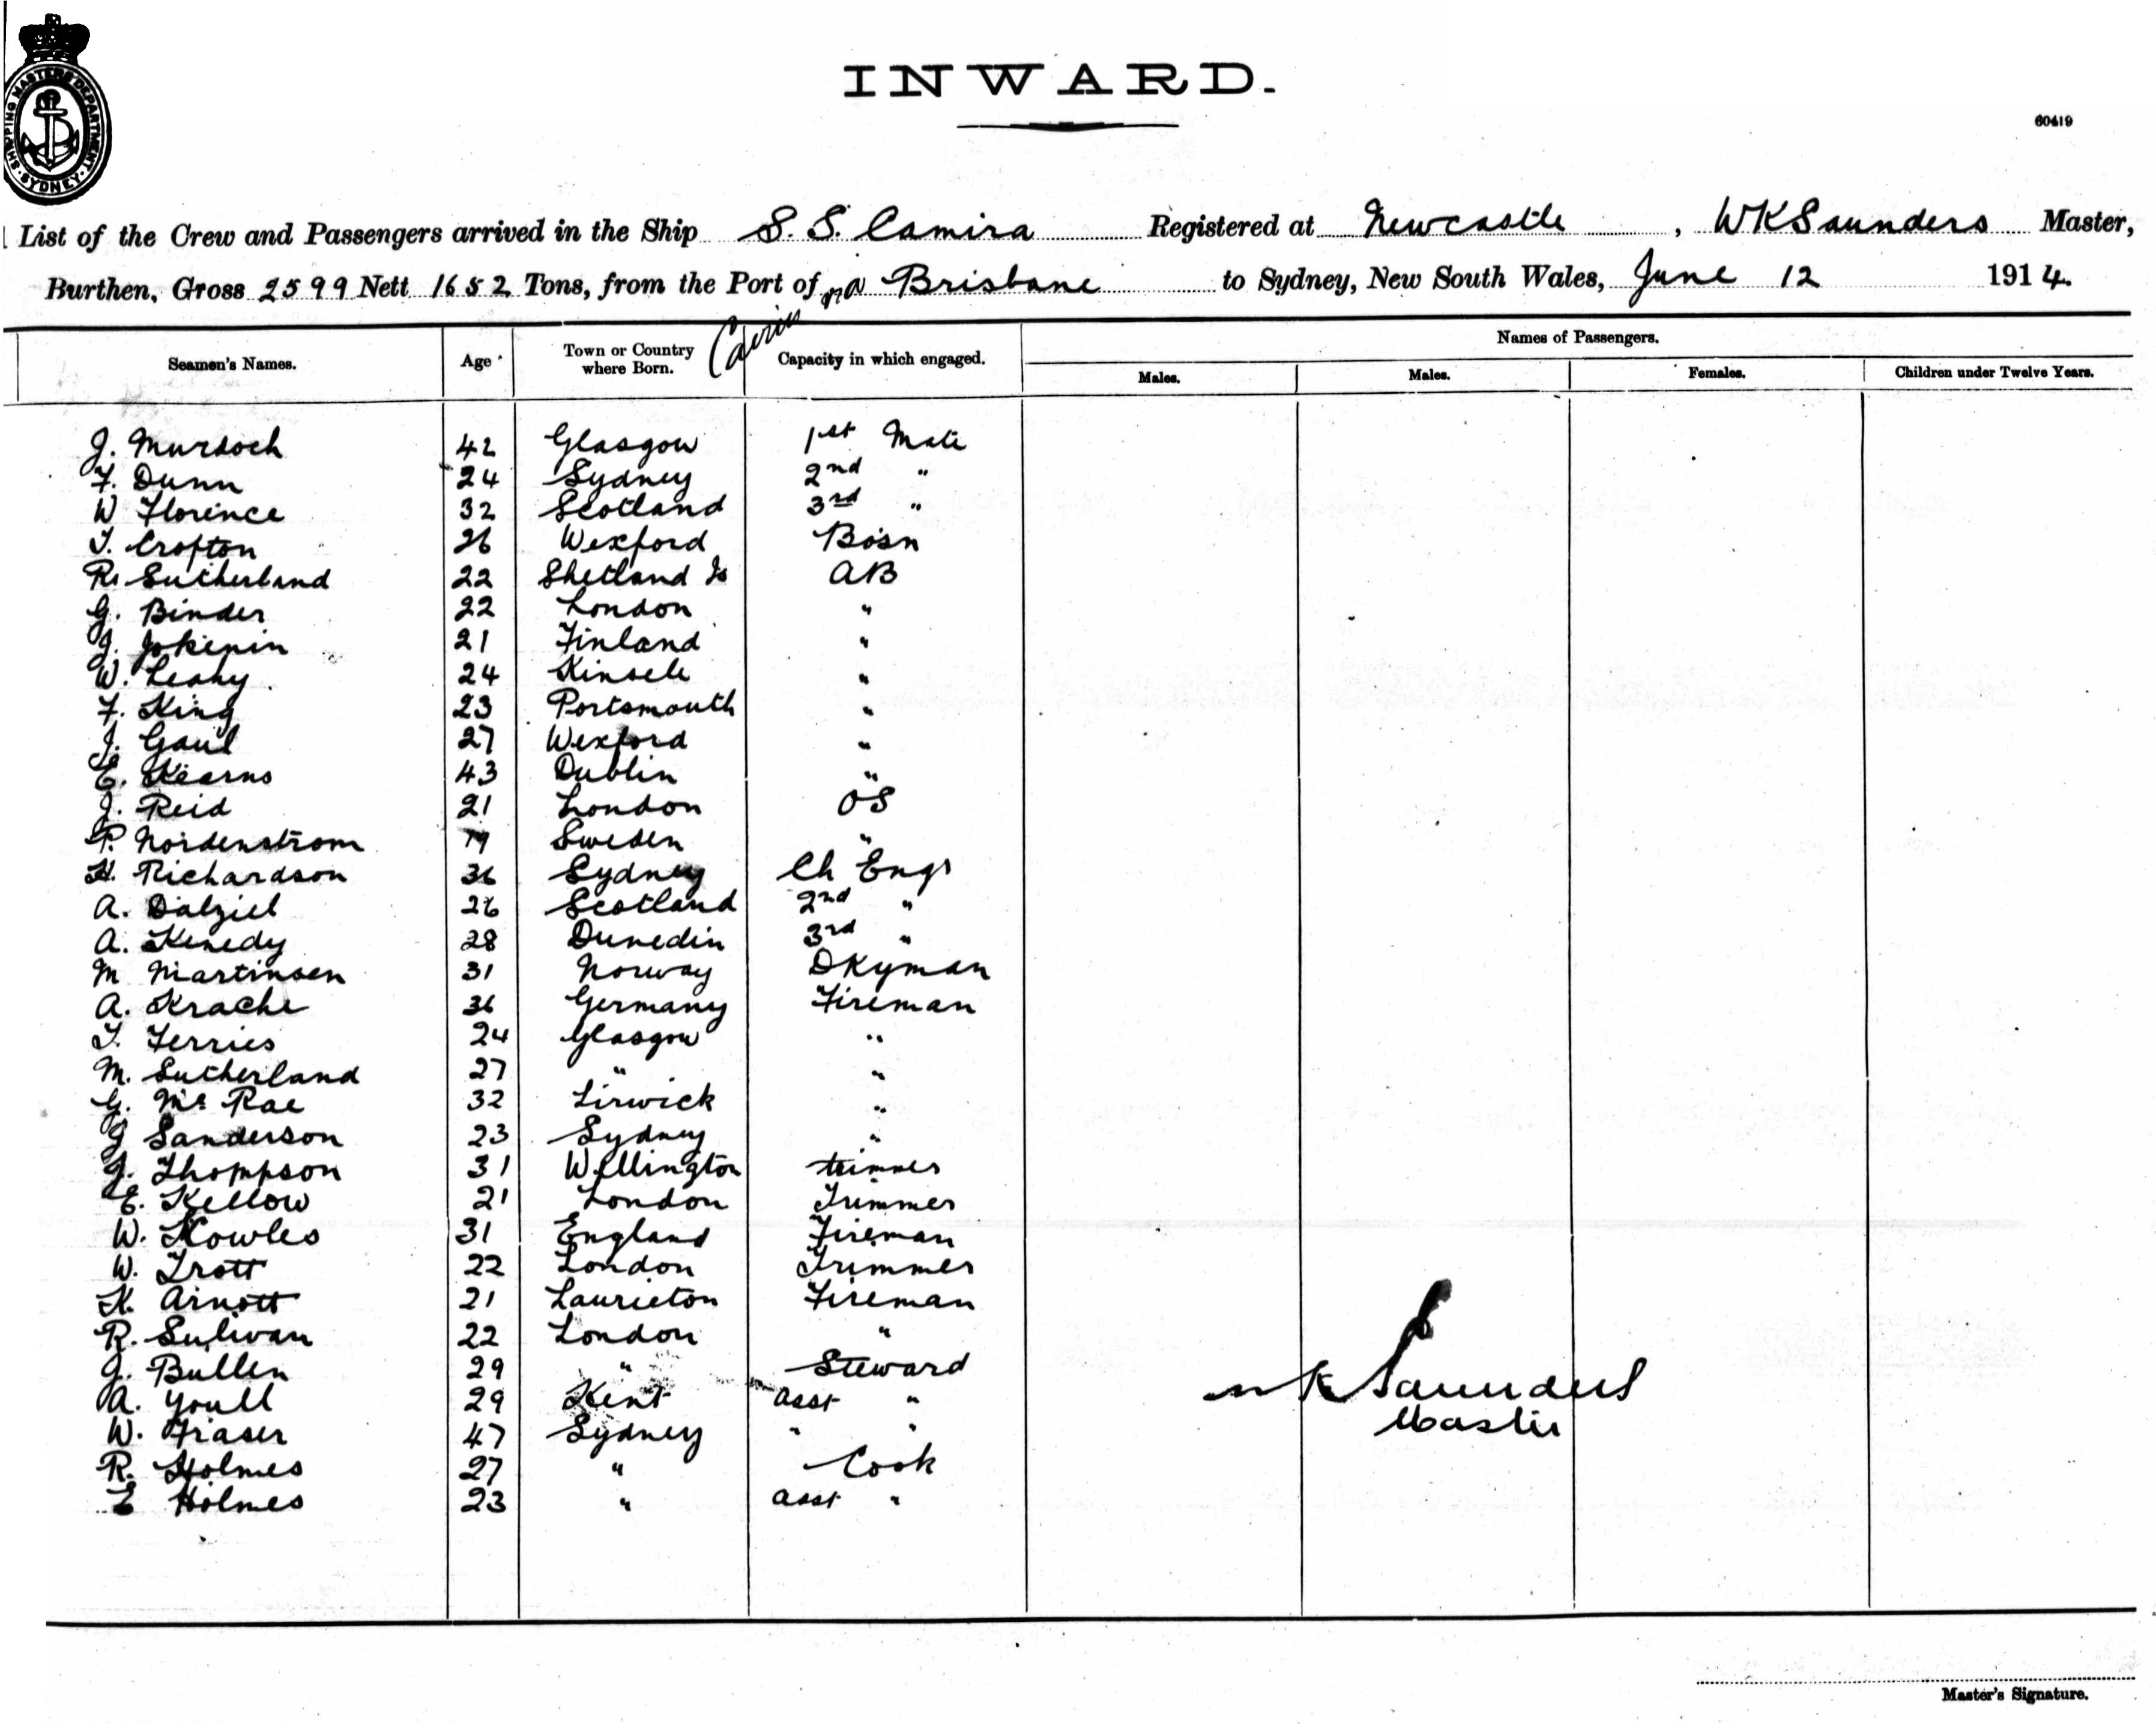 INWARD.
60419
SHIPPING MASTERS DEPARTMENT SYDNEY
List of the Crew and Passengers arrived in the Ship S. S. Camira Registered at Newcastle, WKSaunders Master,
Burthen, Gross 2599 Nett 1652 Tons, from the Port of Brisbane to Sydney, New South Wales, June 12 1914.
Seamen's Names. Age Town or Country where Born. Capacity in which engaged. Names of Passengers.
Males. Males. Females. Children under Twelve Years.
J. Murdoch 42 Glasgow 1st Mate
F. Dunn 24 Sydney 2nd "
W Florence 32 Scotland 3rd "
T. Crofton 26 Wexford Bosn
R. Sutherland 22 Shetland Is AB
G. Binder 22 London "
J. Jokinin 21 Finland "
W. Leahy 24 Kinsele "
F. King 23 Portsmouth "
J. Gaul 27 Wexford "
E. Kearns 43 Dublin "
J. Reid 21 London OS
P. Nordenstrom 19 Sweden "
H. Richardson 36 Sydney Ch Engr
A. Dalziel 26 Scotland 2nd "
A. Kenedy 28 Dunedin 3rd "
M Martinsen 31 Norway DKyman
A. Krache 36 Germany Fireman
T. Ferries 24 Glasgow "
M. Sutherland 27 " "
G. Mc Rae 32 Lirwick "
J Sanderson 23 Sydney "
J. Thompson 31 Wellington trimmer
E. Kellow 21 London Trimmer
W. Kowles 31 England Fireman
W. Trott 22 London Trimmer
K. Arnott 21 Laurieton Fireman
R. Sulivan 22 London "
J. Bullen 29 " Steward
A. Youll 29 Kent asst "
W. Fraser 47 Sydney " "
R. Holmes 27 " Cook
E Holmes 23 " asst "
WK Saunders
Master
Master's Signature.